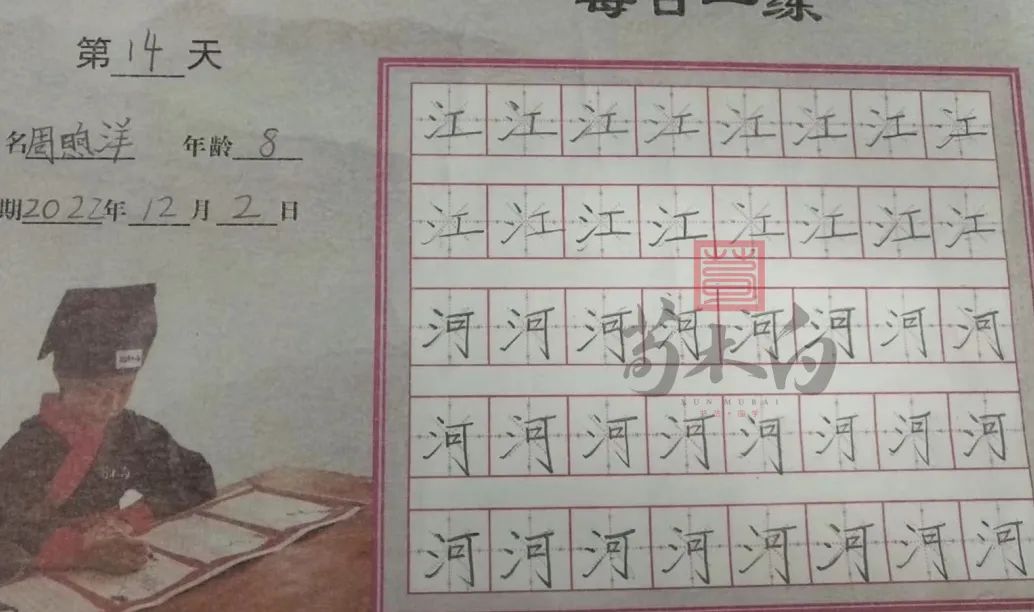 每日一练
第14天
名周煦洋 年龄8
期2022年12月2日
江江江江江江江江
江江江江江江江江
河河河河河河河河
河河河河河河河河
河河河河河河河河
荀木白
XUN MUBAI
书法·国学